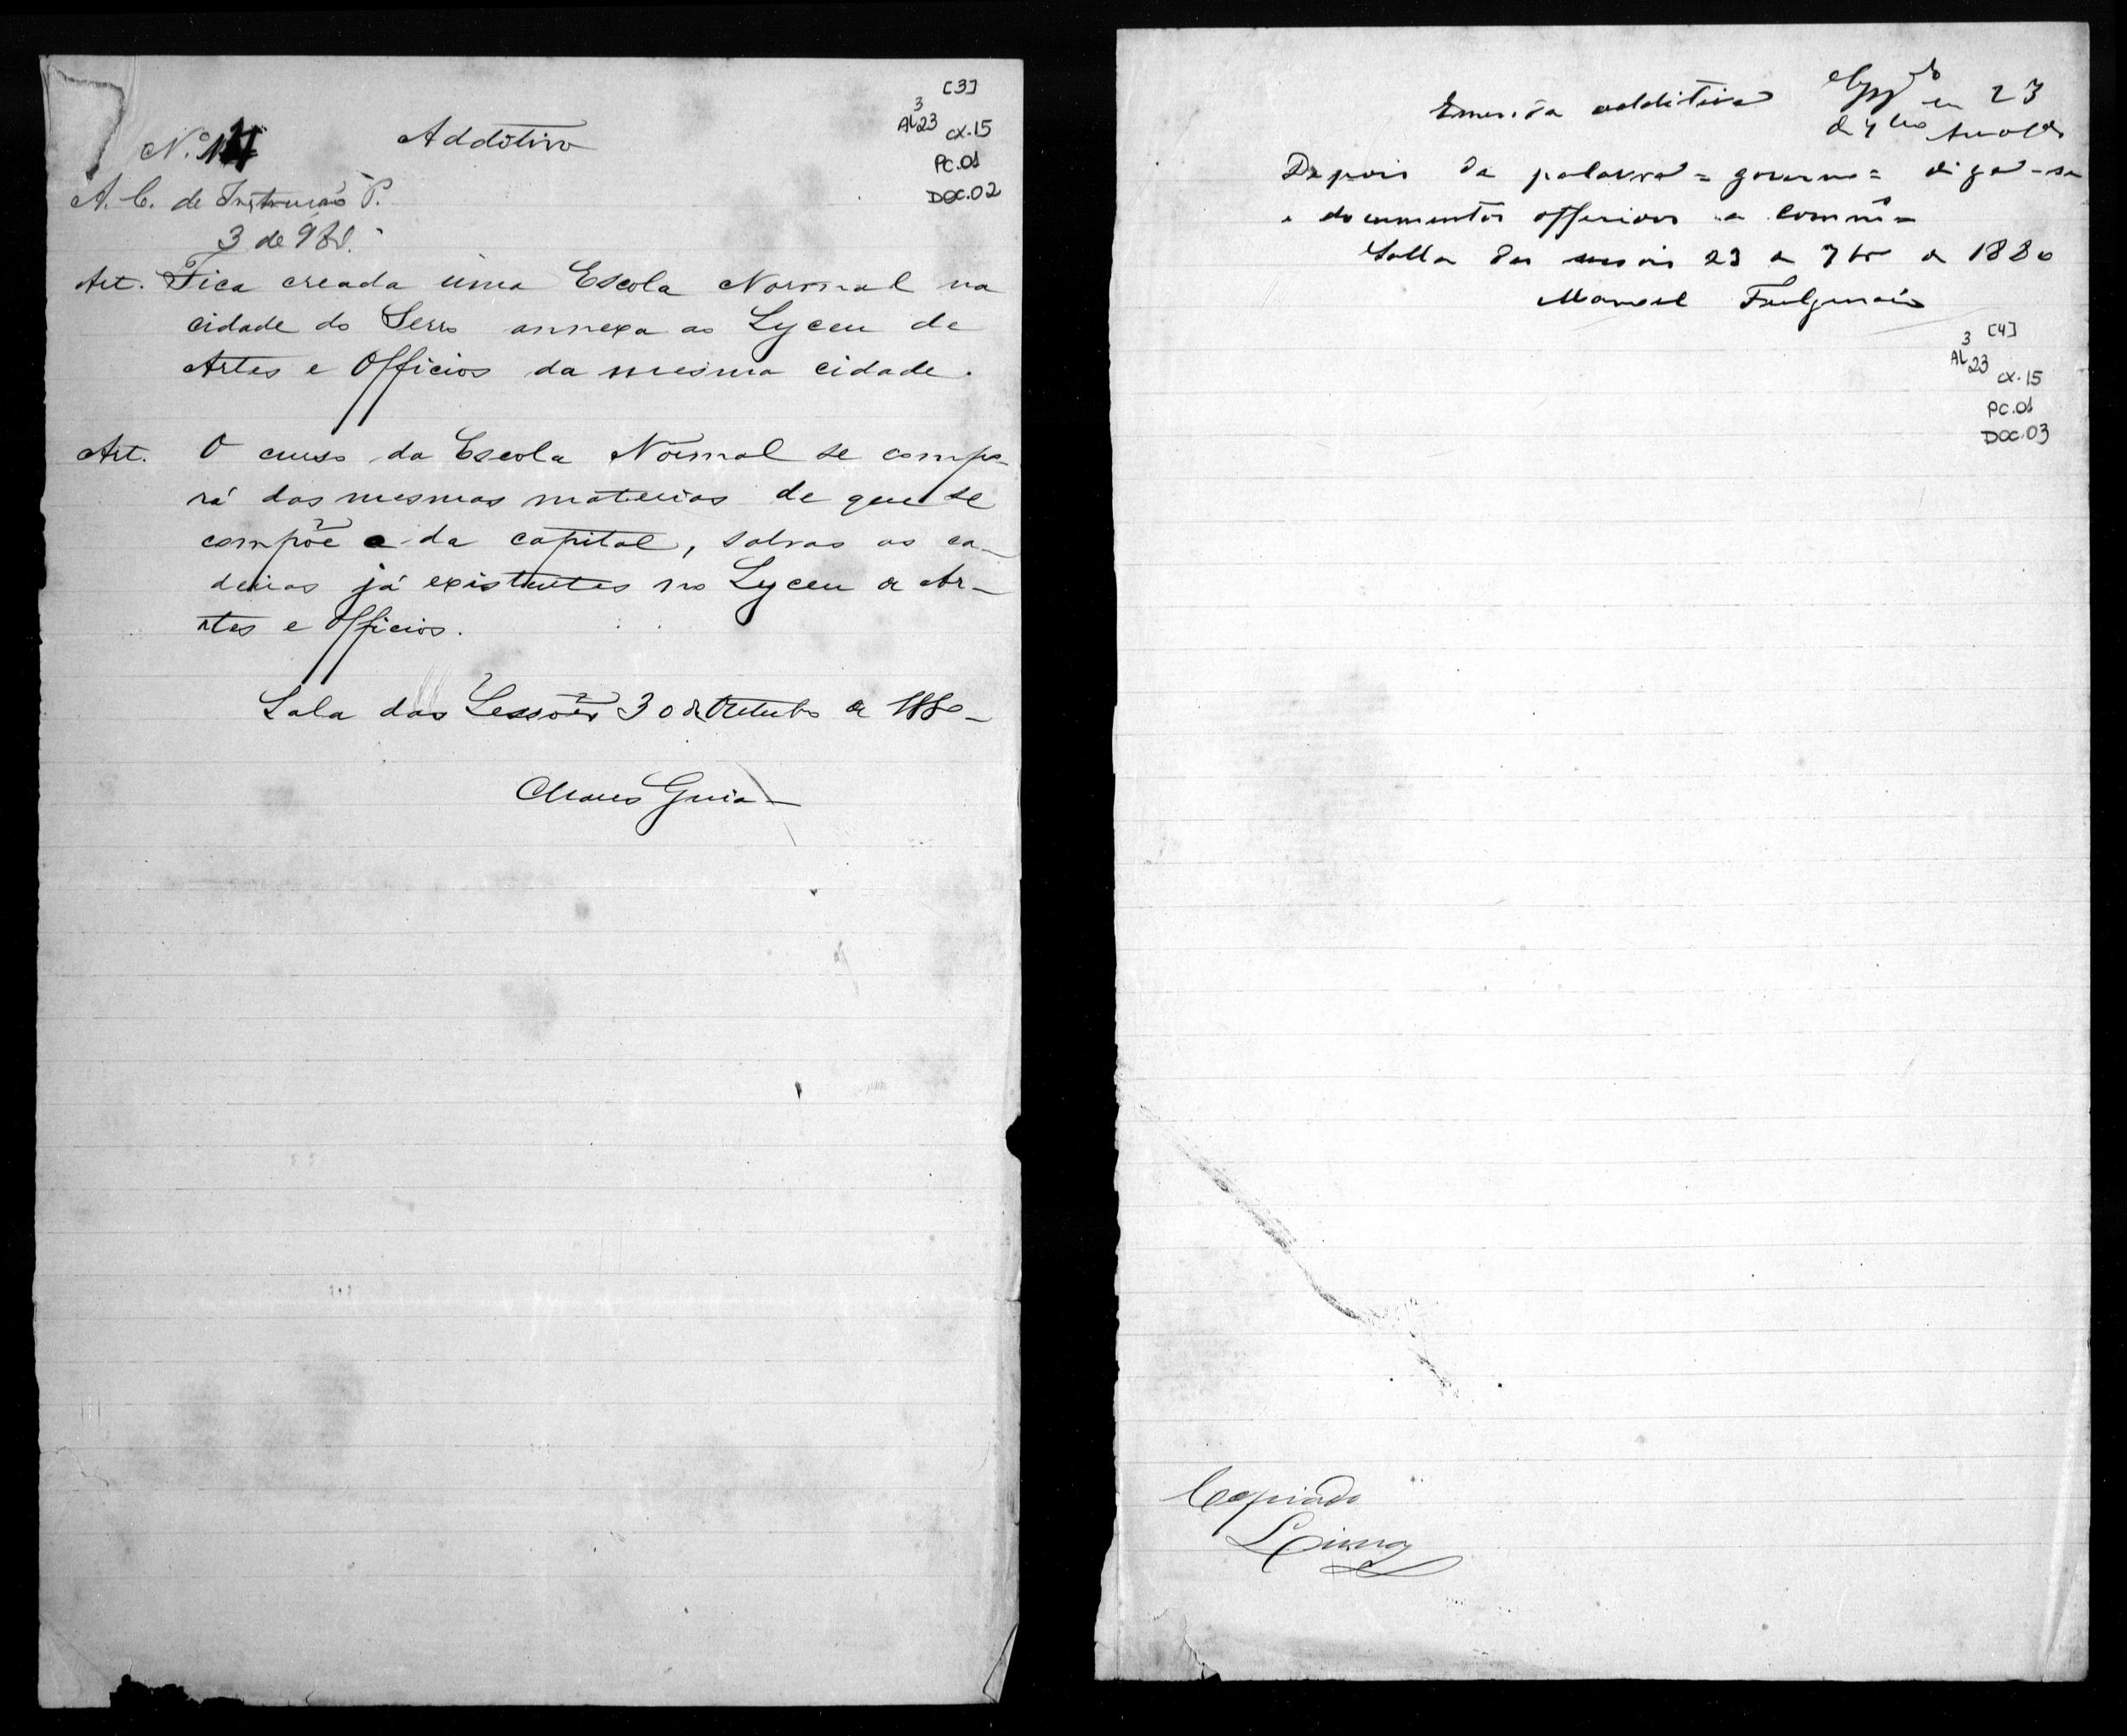 [3]
3
AL23 CX.15
PC.01
DOC.02
Additivo
N.º
A. C. de Instrucção P.
3 de 9br.º
Art. Fica creada uma Escola Normal na
cidade do Serro annexa ao Lyceu de
Artes e Officios da mesma cidade.
Art. O curso da Escola Normal se compo-
rá das mesmas materias de que se
compõe a da capital, salvas as ca-
deiras já existentes no Lyceu de Ar-
rtes e Officios.
Sala das Sessões 30 de Outubro de 1880-
Chaves
Emenda additiva
em 23
Depois da palavra = governo = diga-se
e documentos officiaes
Salla das sessões 23 de 7br de 1880
Manoel Fulgencio
3 [4]
AL23 CX.15
PC.01
DOC.03
Copiado
Lima